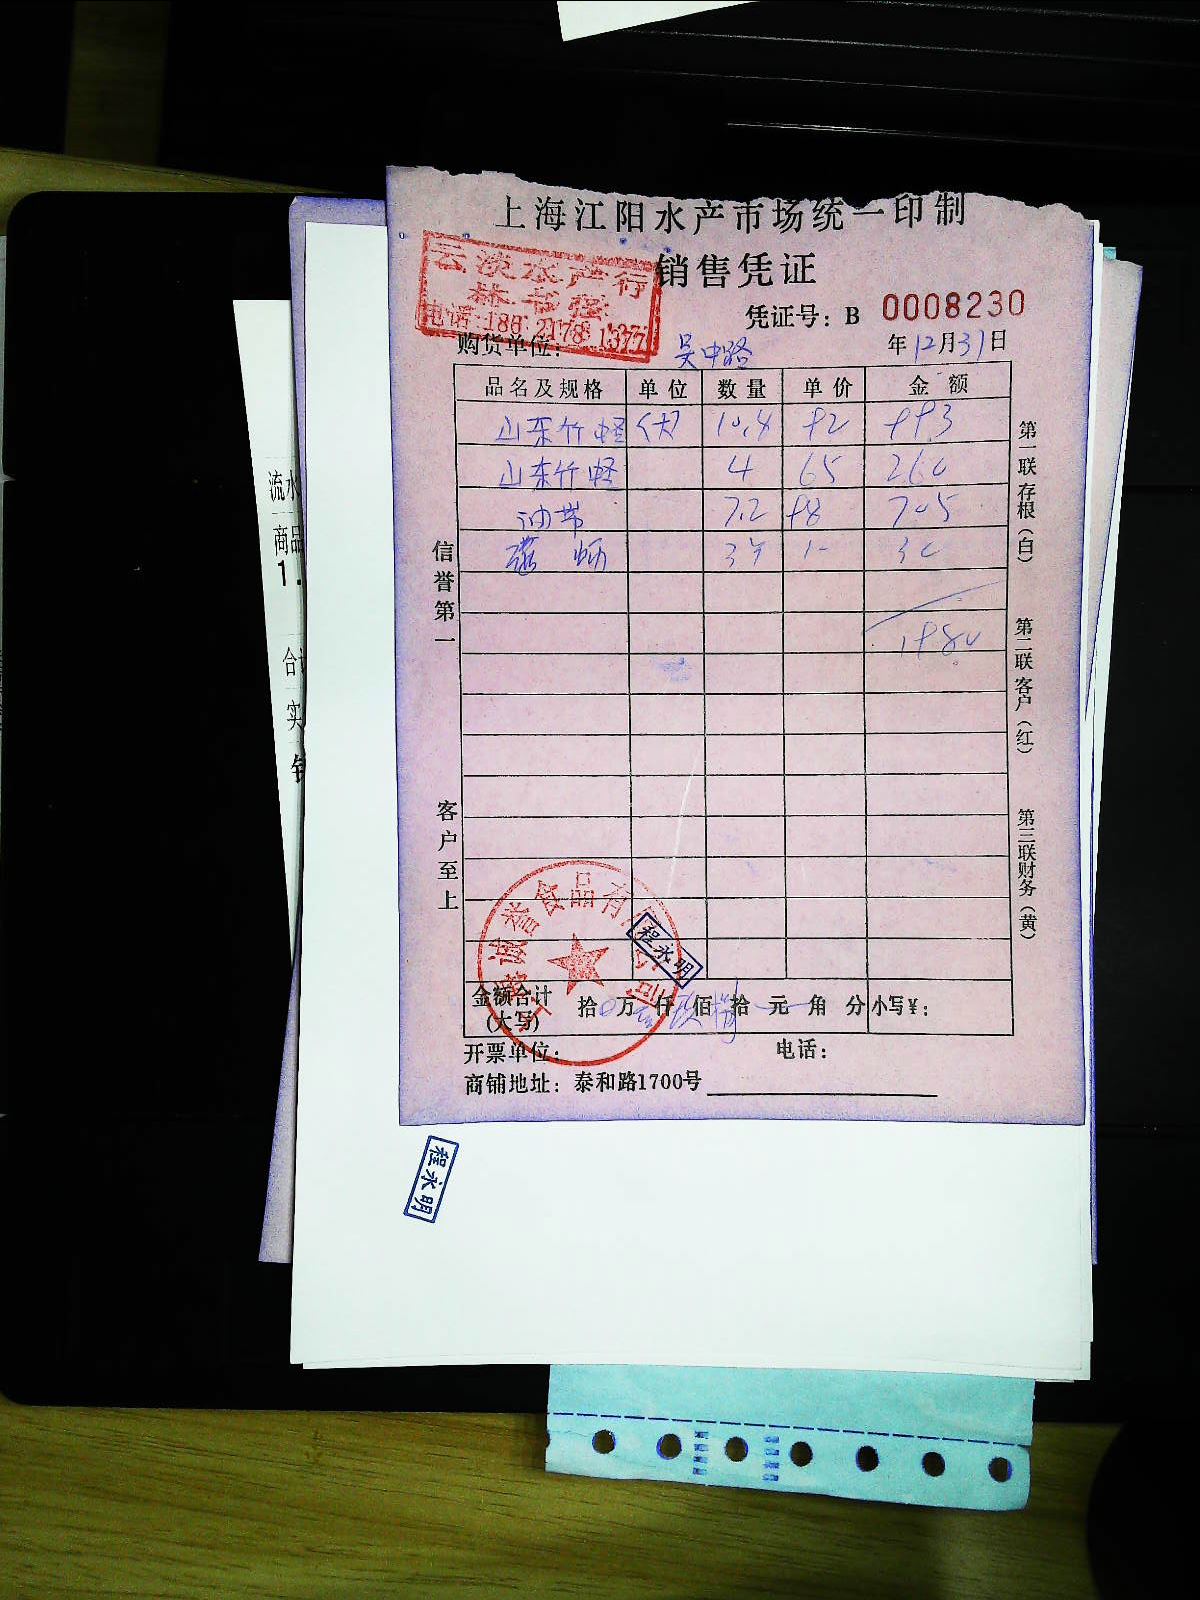 上海江阳水产市场统一印制
销售凭证
云淡水产行
林书强
电话:186 2178 1377
凭证号：B 0008230
购货单位：吴中路
年12月31日
品名及规格 单位 数量 单价 金额
山东竹蛏 (大) 10.8 92 993
山东竹蛏 4 65 260
油带 7.2 98 705
3斤 1- 30
1980
信誉第一
客户至上
第一联存根（白）
第二联客户（红）
第三联财务（黄）
诚誉食品有限公司
程永明
金额合计
(大写)
拾 万 仟 佰 拾 元 角 分 小写¥：
开票单位：
电话：
商铺地址：泰和路1700号
程永明
流水
商品
1.
合计
实